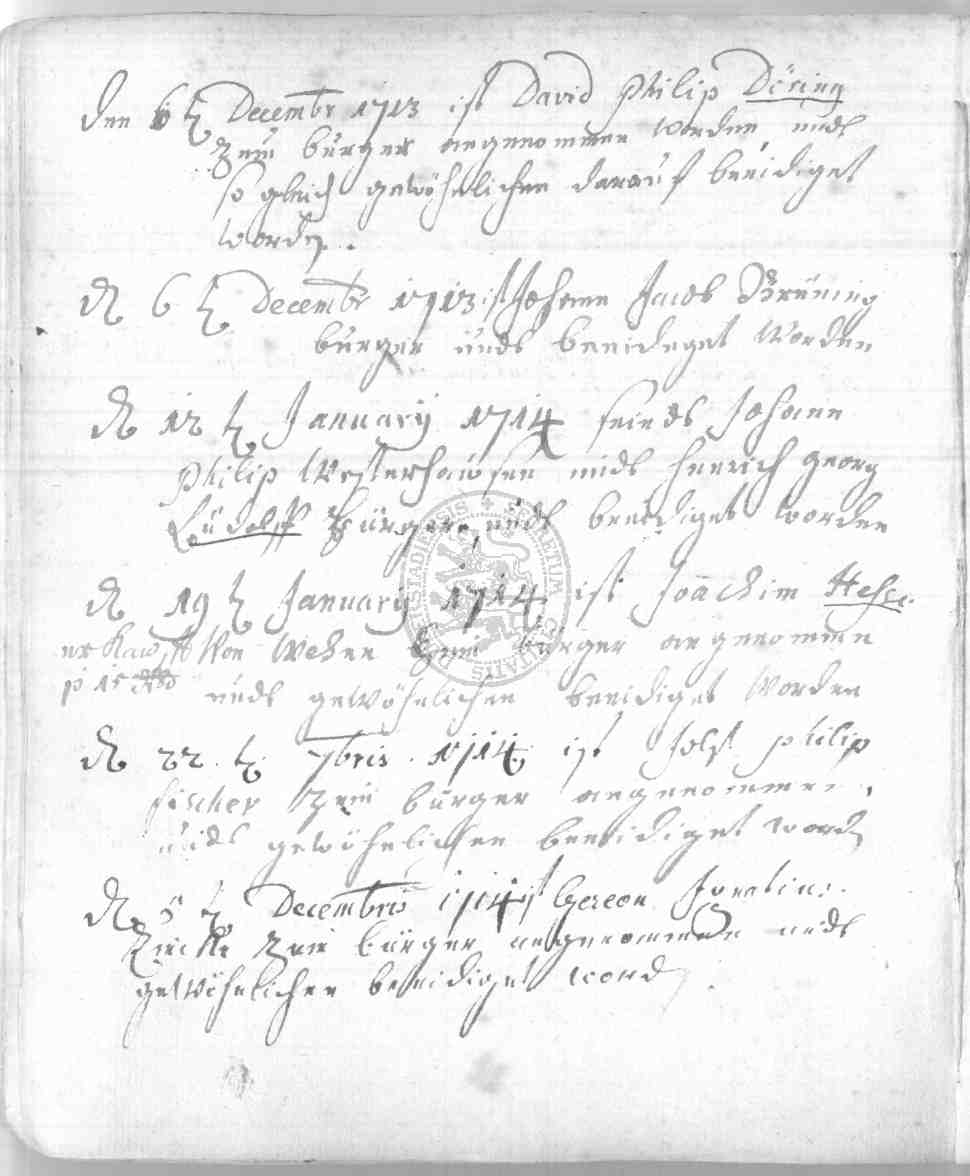 den 6 t Decembr 1713 ist David Philip Döring
zum bürger angenommen worden unds
so gleich gewöhnlichen darauf beeidiget
worden.
d 6 t Decembr 1713 ist Johann Jacob Brüning
bürger unds beeideget Worden
d 12 t January 1714 seinds Johann
Philip Westerhausen unds Henrich Georg
Ludolff Bürger unds beeidiget worden
d 19 t January 1714 ist Joachim Hesse
Von Wehen Zum bürger angenommen
p 15
unds gewöhnlichen beeidiget Worden
d 22 t 7bris 1714 ist Jost philip
fischer Zum bürger angenommen,
unds gewöhnlichen beeidiget word
d 5 t Decembris 1714 ist Gereon Ignatius
zum bürger angenommen unds
gewöhnlichen beeidiget word
SECRETUM CIVITATIS